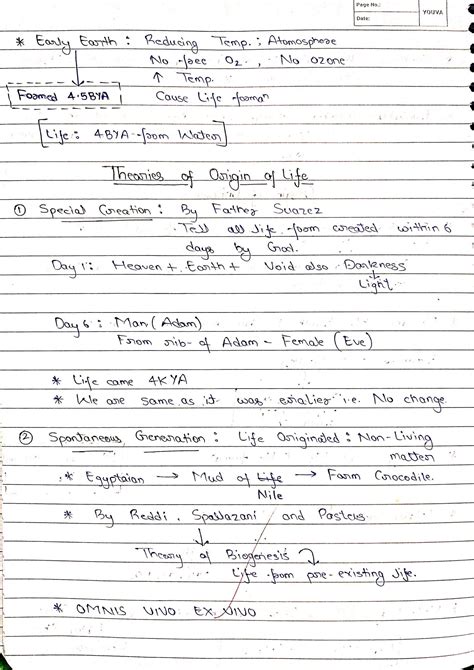 Page No.:
Date:
YOUVA
* Early Earth : Reducing Temp. ; Atomosphere
No free O2 , No ozone
↑ Temp.
Formed 4.5BYA
Cause Life forman
[Life : 4BYA from Water]
Theories of Origin of Life
① Special Creation : By Father Suarez
Tell all life from created within 6
days by God.
Day 1 : Heaven + Earth + Void also Darkness
Light
Day 6 : Man (Adam)
From rib- of Adam - Female (Eve)
* Life came 4KYA
* We are same as it was erialier i.e. No change
② Spontaneous Generation : Life Originated : Non-Living
matter
* Egyptaian → Mud of Life → Form Crocodile.
Nile
* By Reddi, Spallazani and Pasteus
Theory of Biogenesis
Life from pre-existing life.
* OMNIS VIVO EX VIVO